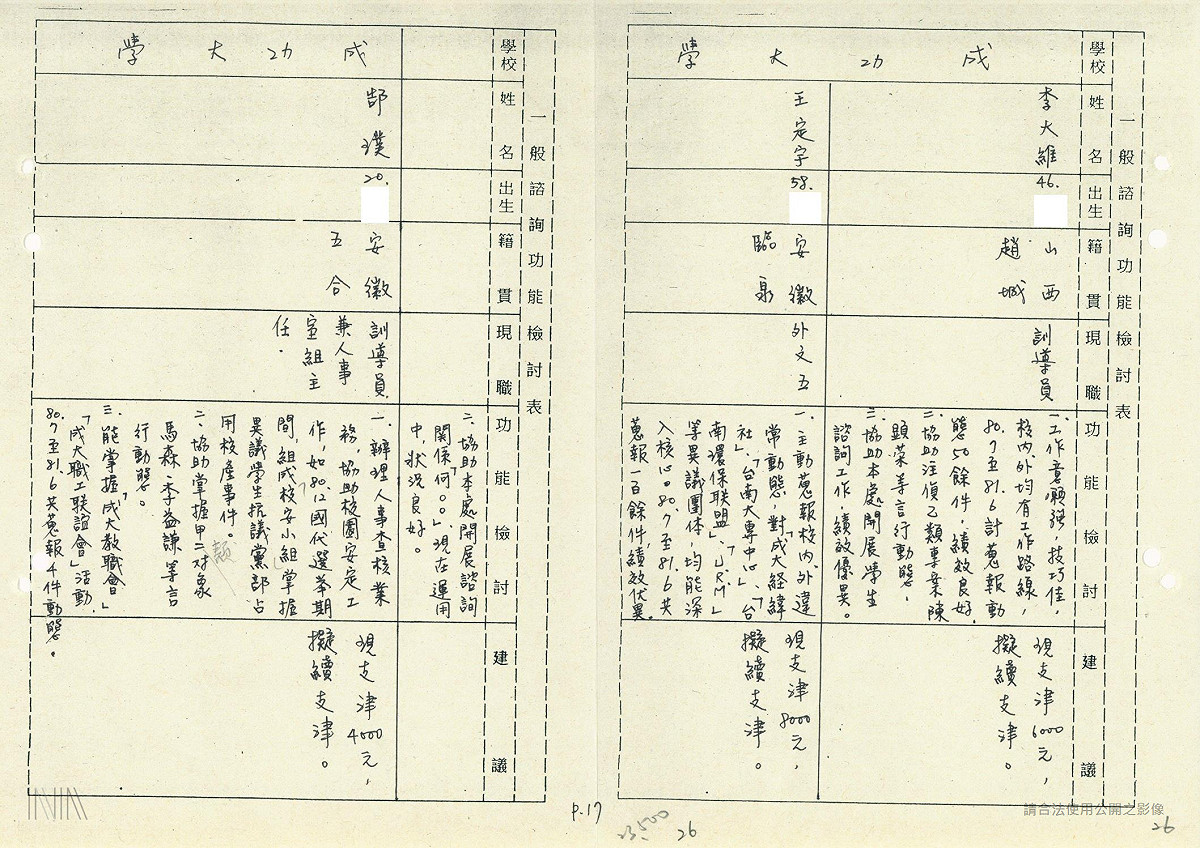 一般諮詢功能檢討表
學校
姓名
出生
籍貫
現職
功能檢討
建議
成功大學
李大維
46.
山西
趙城
訓導員
一、工作意願強，技巧佳，
校內、外均有工作路線，
80.7至81.6計蒐報動
態50餘件，績效良好。
二、協助注偵乙類專案陳
顯榮等言行動態，
三、協助本處開展學生
諮詢工作，績效優異。
現支津6000元，
擬續支津。
王定宇
58.
安徽
臨泉
外文五
一、主動蒐報校內、外違
常動態，對「成大經緯
社」、「台南大專中心」、「台
南環保聯盟」、「URM」
等異議團体，均能深
入核心，80.7至81.6共
蒐報一百餘件，績效優異。
現支津8000元，
擬續支津。
一般諮詢功能檢討表
學校
姓名
出生
籍貫
現職
功能檢討
建議
成功大學
二、協助本處開展諮詢
關係「何○○」，現在運用
中，狀況良好。
郜璞
20.
安徽
五合
訓導員
兼人事
室組主
任.
一、辦理人事查核業
務，協助校園安定工
作，如80.12國代選舉期
間，組成「校安小組」掌握
異議學生抗議黨部占
用校產事件。
二、協助掌握甲二对象
馬森、李益謙等言
行動態。
三、能掌握「成大教職會」、
「成大職工联誼會」活動，
80.7至81.6共蒐報4件動態。
現支津4000元，
擬續支津。
P.17
23,500
26
26
請合法使用公開之影像